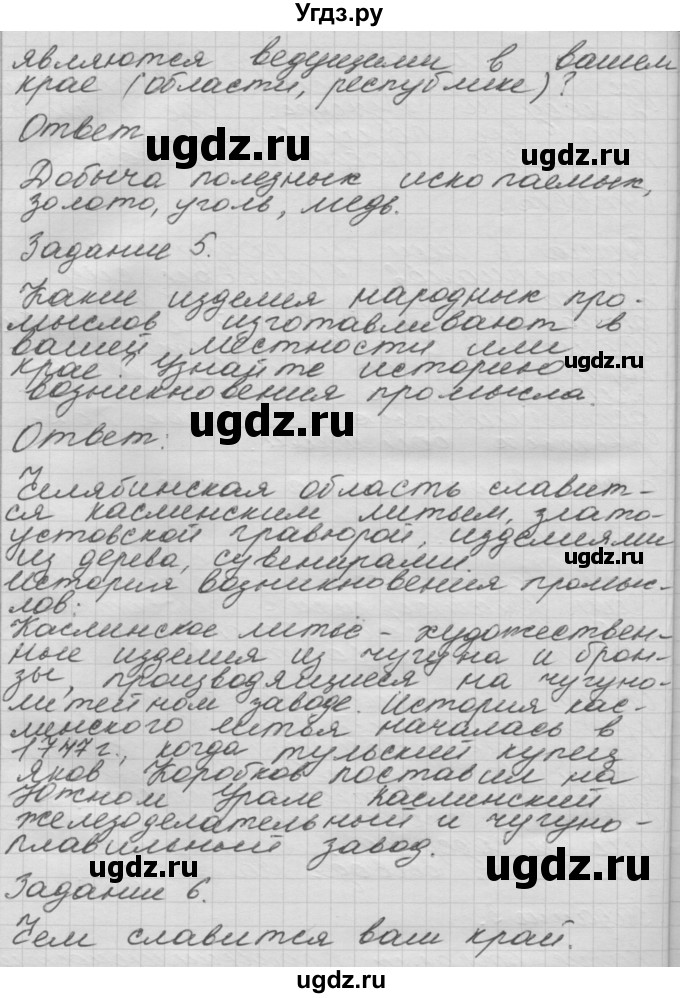 Угдз.ру
являются ведущими в вашем
крае (области, республике)?
Ответ
ugdz.ru
ugdz.ru
Добыча полезных ископаемых,
золото, уголь, медь.
Задание 5.
Какие изделия народных про-
мыслов изготавливают в
вашей местности или
крае? Узнайте историю
ugdz.ru
возникновения промысла.
Ответ:
ugdz.ru
Челябинская область славит-
ся каслинским литьем, злато-
устовской гравюрой, изделиями
из дерева, сувенирами.
ugdz.ru
История возникновения промыс-
лов:
Каслинское литьё - художествен-
ные изделия из чугуна и брон-
зы, производящиеся на чугуно-
литейном заводе. История кас-
линского литья началась в
1747 г., когда тульский купец
Яков Коробков поставил на
Южном Урале Каслинский
железоделательный и чугуно-
плавильный завод.
ugdz.ru
ugdz.ru
Задание 6.
Чем славится ваш край.
ugdz.ru